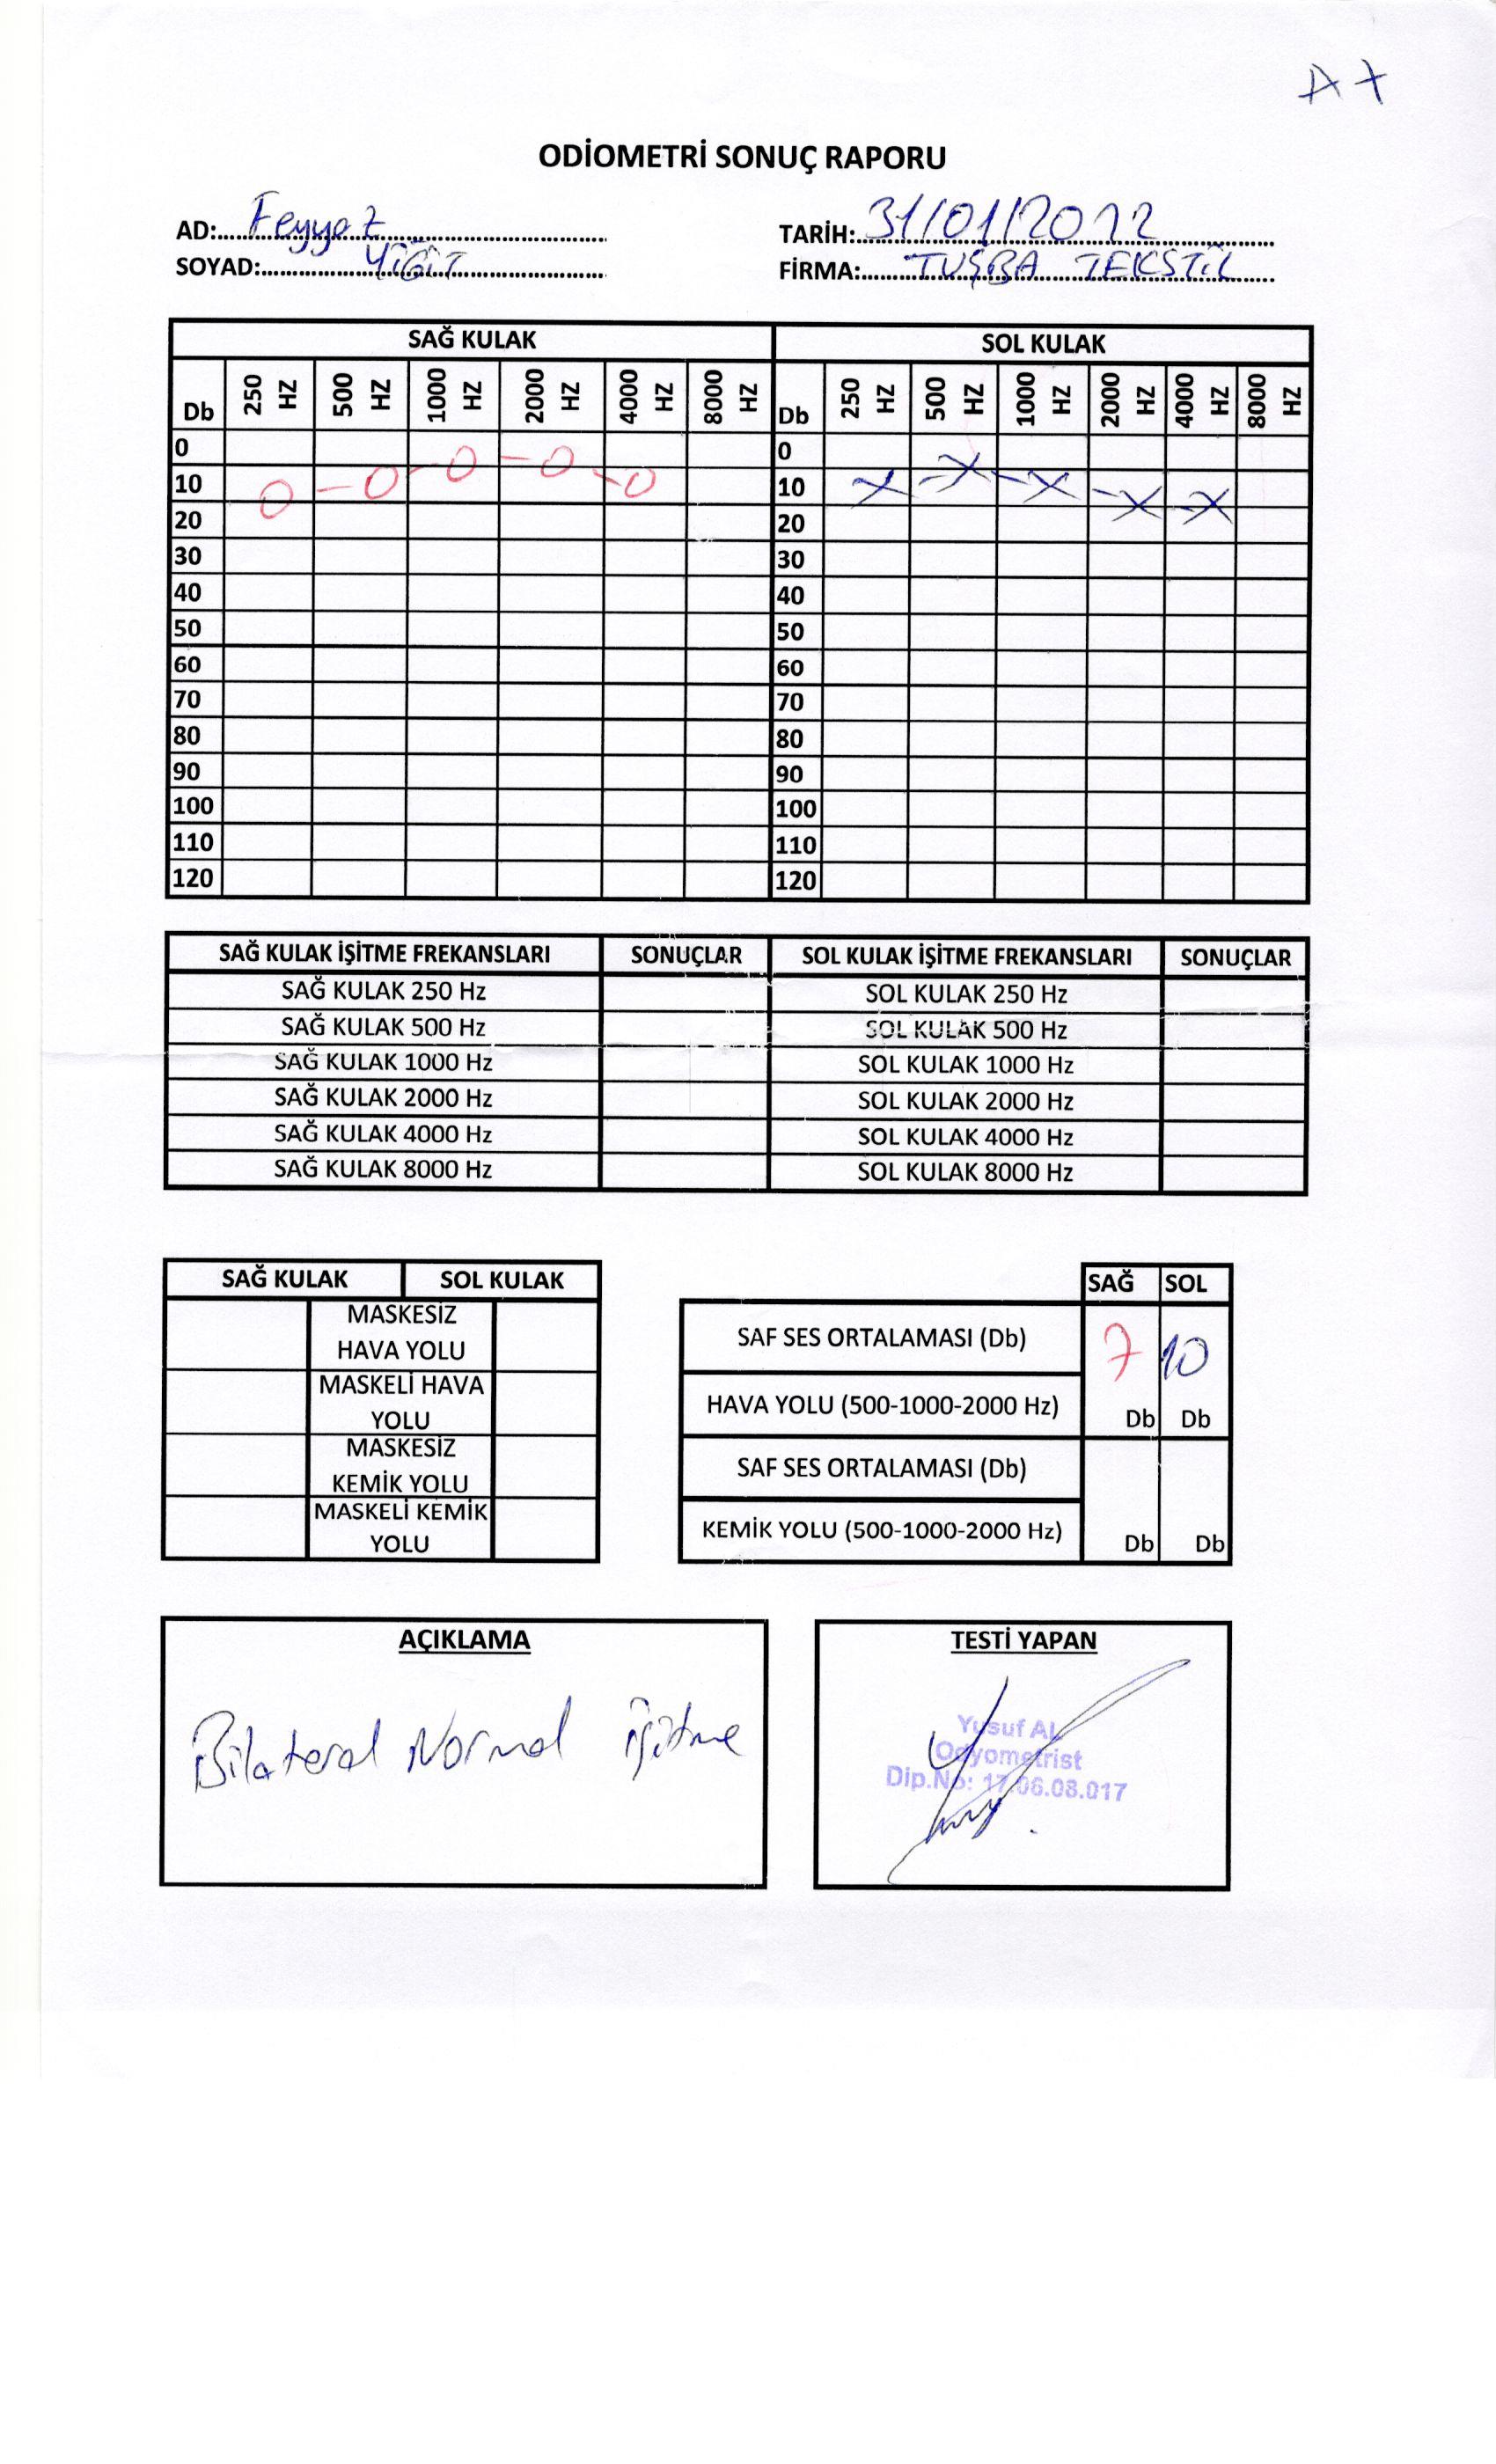 A+
ODİOMETRİ SONUÇ RAPORU
AD:..... Feyyaz
TARİH:..... 31/01/2022
SOYAD:..... YİĞİT
FİRMA:..... TUŞBA TEKSTİL
SAĞ KULAK SOL KULAK
Db 250 HZ 500 HZ 1000 HZ 2000 HZ 4000 HZ 8000 HZ Db 250 HZ 500 HZ 1000 HZ 2000 HZ 4000 HZ 8000 HZ
0 0
10 10
20 20
30 30
40 40
50 50
60 60
70 70
80 80
90 90
100 100
110 110
120 120
SAĞ KULAK İŞİTME FREKANSLARI SONUÇLAR SOL KULAK İŞİTME FREKANSLARI SONUÇLAR
SAĞ KULAK 250 Hz SOL KULAK 250 Hz
SAĞ KULAK 500 Hz SOL KULAK 500 Hz
SAĞ KULAK 1000 Hz SOL KULAK 1000 Hz
SAĞ KULAK 2000 Hz SOL KULAK 2000 Hz
SAĞ KULAK 4000 Hz SOL KULAK 4000 Hz
SAĞ KULAK 8000 Hz SOL KULAK 8000 Hz
SAĞ KULAK SOL KULAK
MASKESİZ
HAVA YOLU
MASKELİ HAVA
YOLU
MASKESİZ
KEMİK YOLU
MASKELİ KEMİK
YOLU
SAĞ SOL
SAF SES ORTALAMASI (Db) 7 10
HAVA YOLU (500-1000-2000 Hz) Db Db
SAF SES ORTALAMASI (Db)
KEMİK YOLU (500-1000-2000 Hz) Db Db
AÇIKLAMA
Bilateral Normal işitme
TESTİ YAPAN
Yusuf AL
Odyometrist
Dip.No: 17.06.08.017